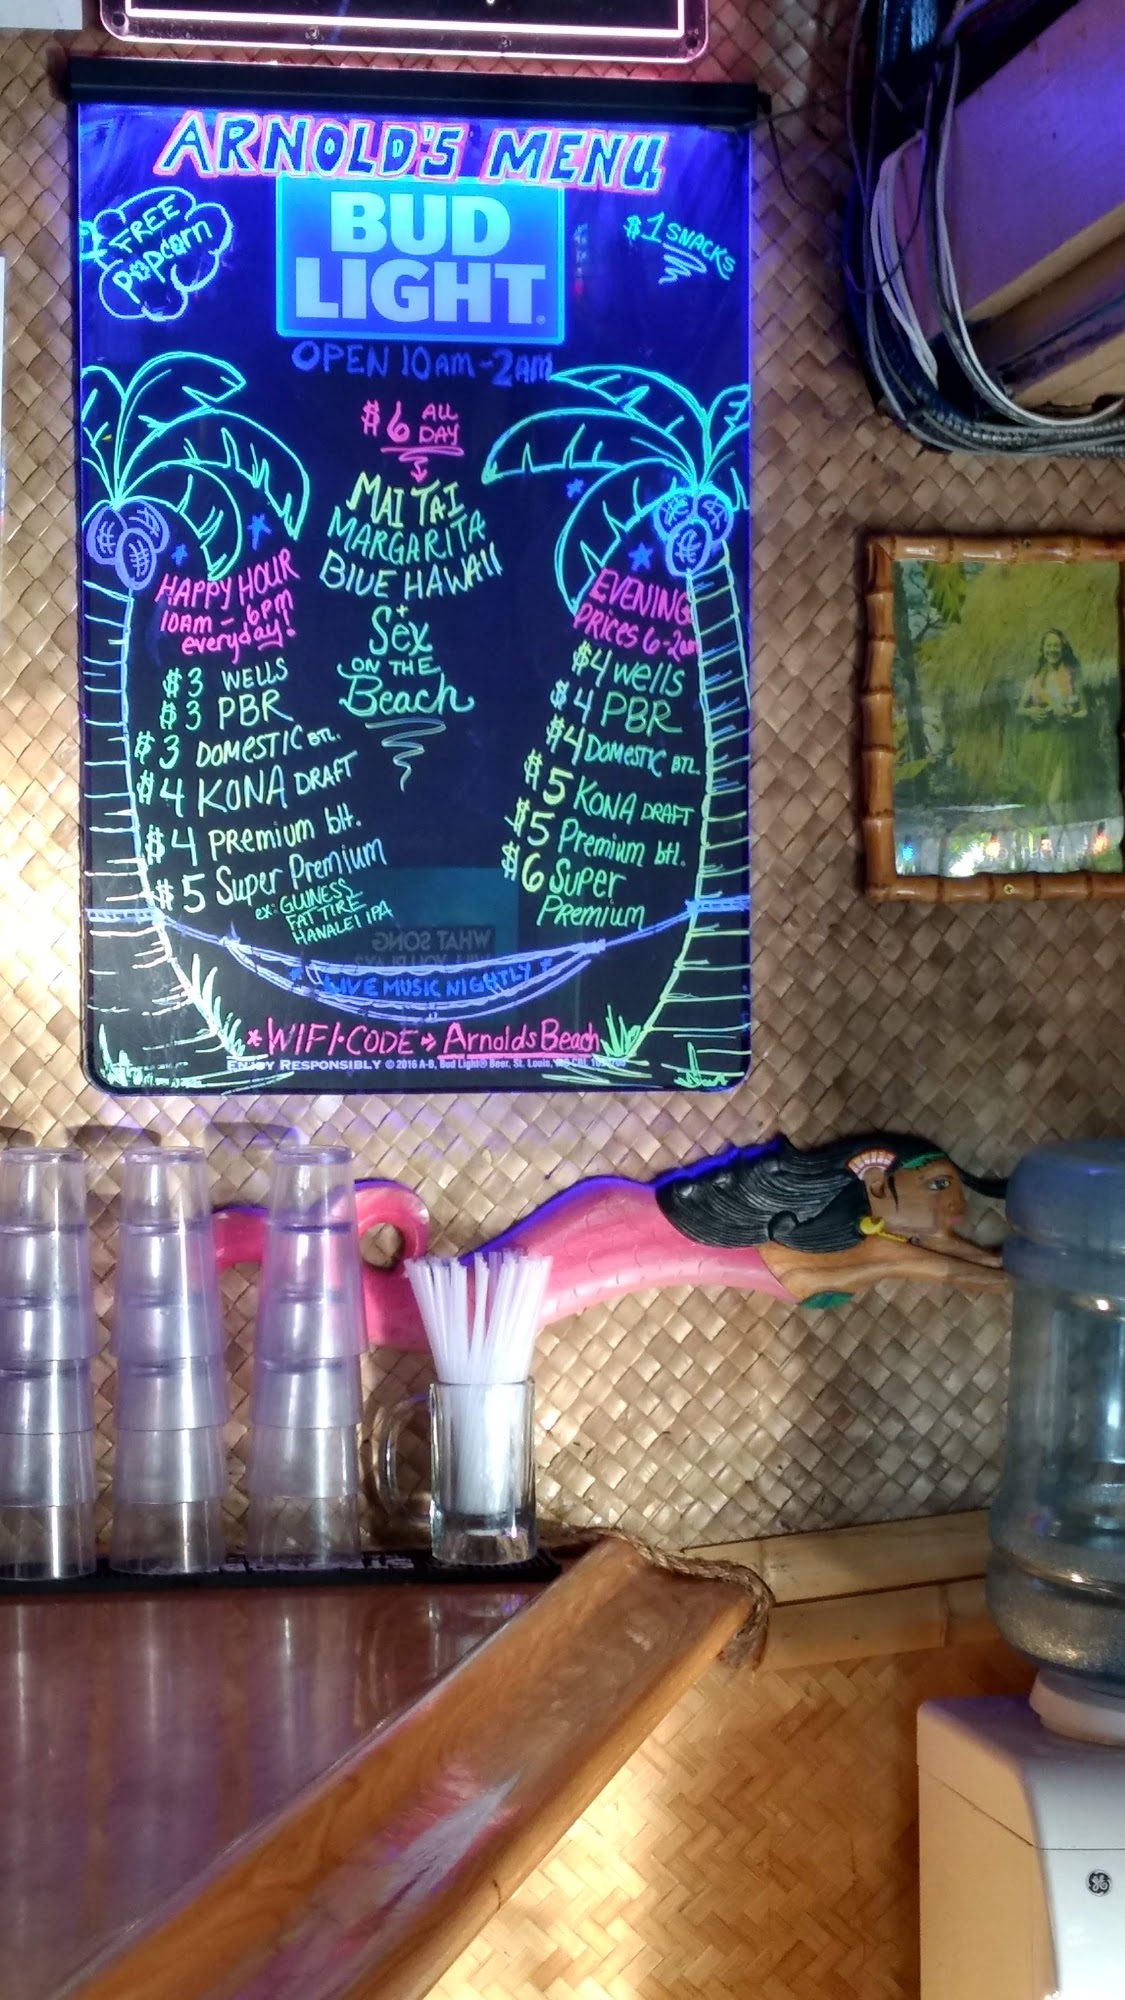 ARNOLD'S MENU
FREE
popcorn
BUD
LIGHT
$1 SNACKS
OPEN 10AM-2AM
$6 ALL
DAY
MAI TAI
MARGARITA
BLUE HAWAII
+
SEX
ON THE
Beach
HAPPY HOUR
10AM - 6PM
everyday!
$3 WELLS
$3 PBR
$3 DOMESTIC BTL.
$4 KONA DRAFT
$4 PREMIUM blt.
$5 Super Premium
ex: GUINESS
FAT TIRE
HANALEI IPA
EVENING
PRICES 6-2am
$4 wells
$4 PBR
$4 DOMESTIC BTL
$5 KONA DRAFT
$5 Premium btl.
$6 SUPER
PREMIUM
WHAT SONG
LIVE MUSIC NIGHTLY
*WIFI-CODE → Arnolds Beach
ENJOY RESPONSIBLY © 2016 A-B, Bud Light® Beer, St. Louis,
GE